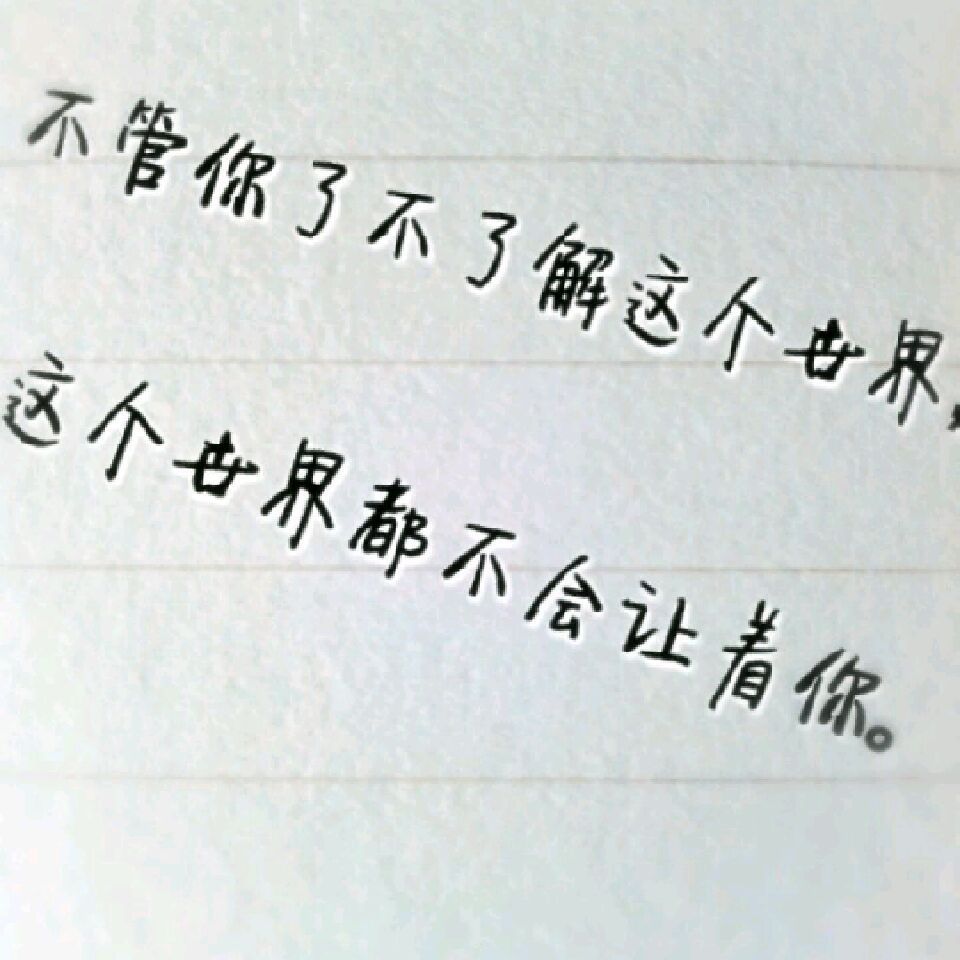 不管你了不了解这个世界,
这个世界都不会让着你。